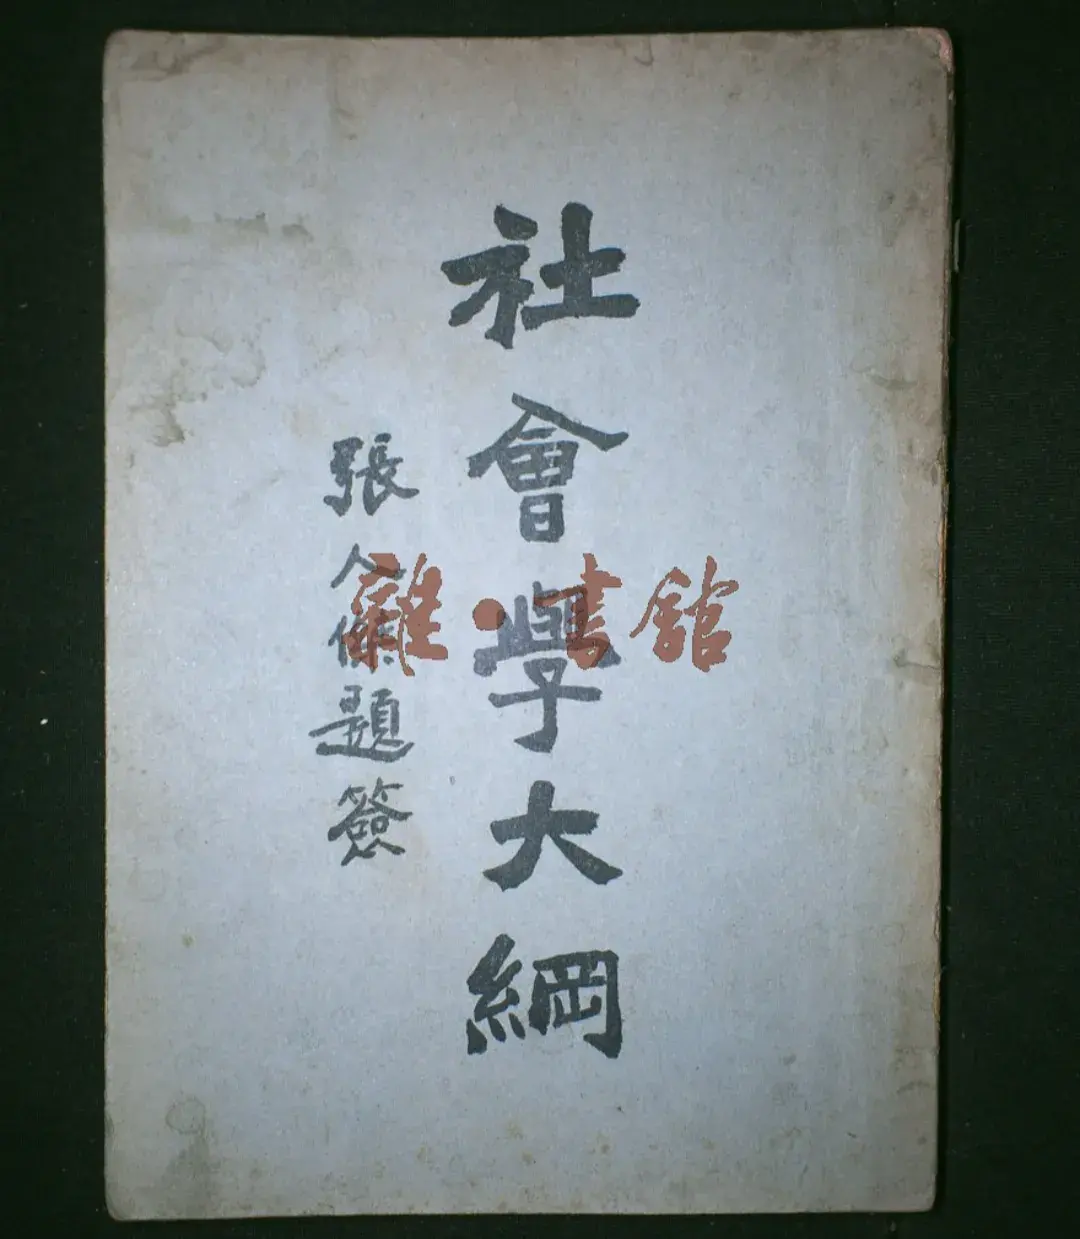 社會學大綱
張人傑題簽
雜·書館